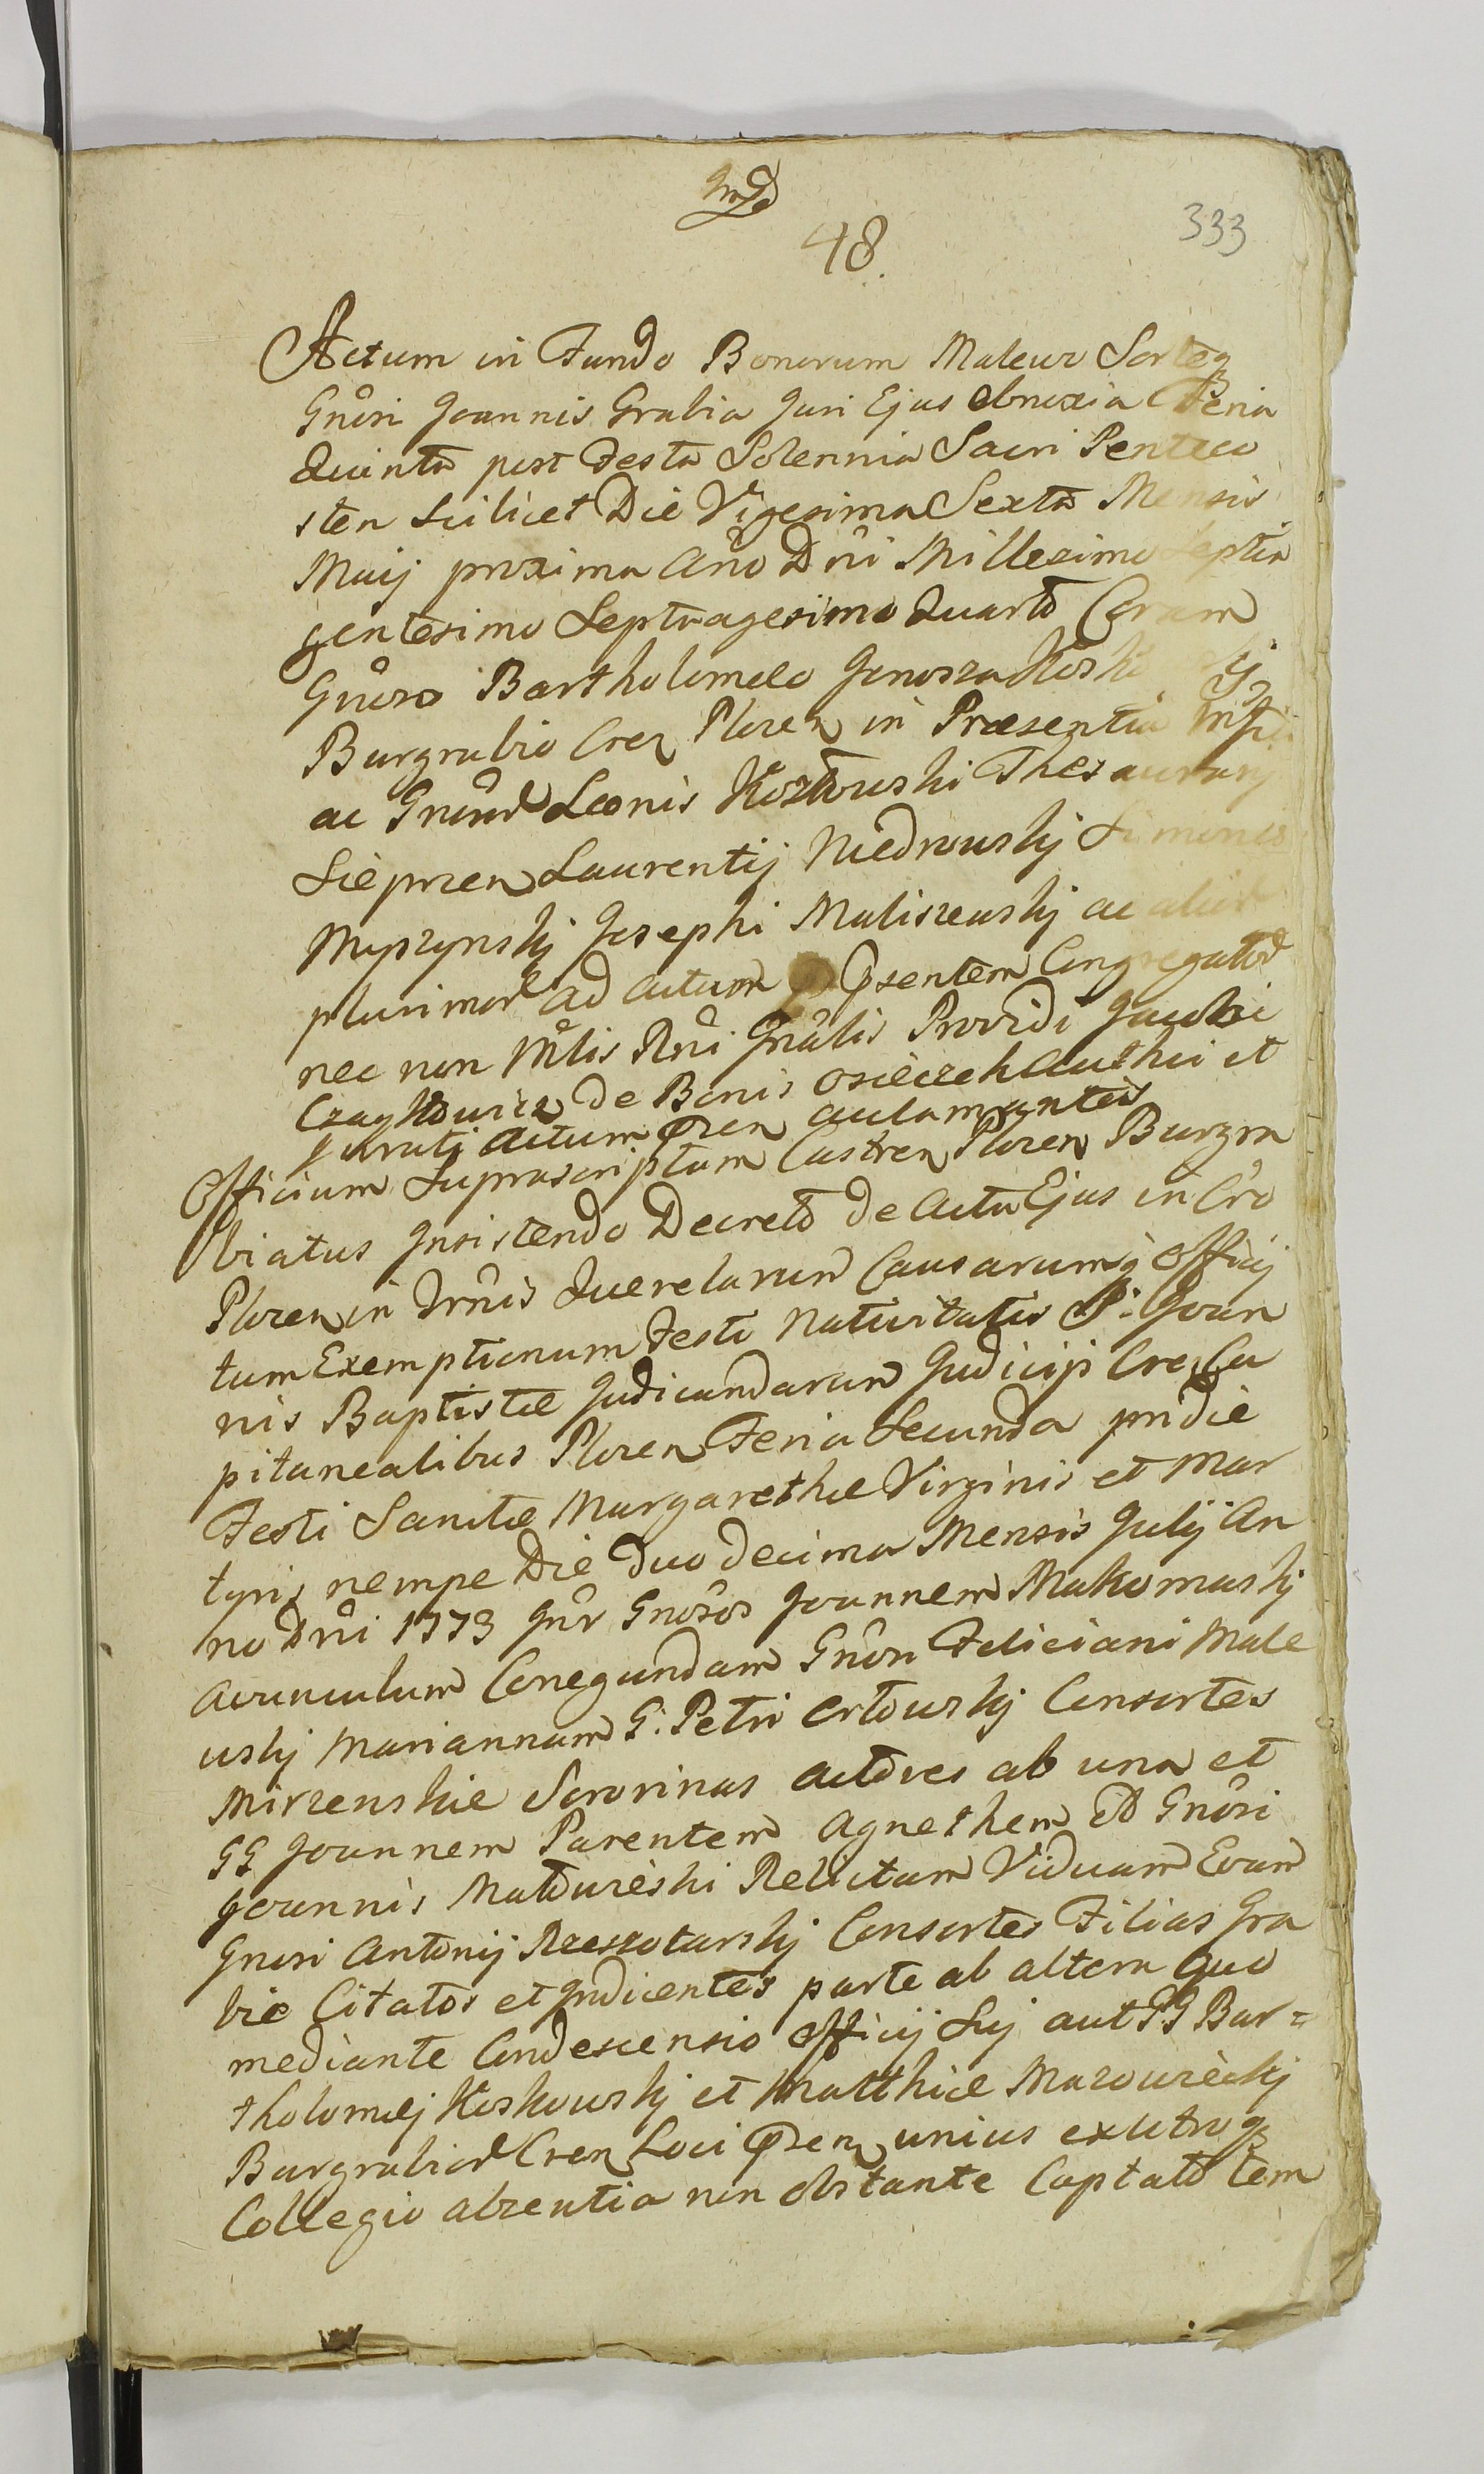 48.
333
Actum in Fundo Bonorum Malewo Sorteq
Gnosi Joannis Grabia Juri Ejus obnoxia Feria
Quinta post Festa Solennia Sacri Penteco
sten scilicet Die Vigesima Sexta Mensis
Maij proxima Año Dñi Millesimo Septin
gentesimo Septuagesimo Quarto Coram
Gnoso Bartholomeo Junosza
Burgrabio Cren Plocen in Præsentia
ac Gnosor Leonis Kozłowski Thesaurarij
Sieprcen Laurentij Niedrowskj Simonis
Myszynskj Josephi Maliszewskj ac alior
plurimor ad Actum Psentem Congregator
nec non Mtlis Rñi Gnalis Providi Jacobi
de Bonis Osiecz et
Jurati Actum Psen aclamantis
Officium Suprascriptum Castren Plocen Burgra
biatus Insistendo Decreto de Actu Ejus in Cro
Plocen in Trñis Querelarum Causarumq Officij
tum Exemptionum Festi Nativitatis S: Joan
nis Baptistæ Judicandarum Judicijs Cren Ca
pitanealibus Plocen Feria Secunda pridie
Festi Sanctæ Margarethæ Virginis et Mar
tyris nempe Die Duodecima Mensis Julij An
no Dñi 1773 Intr Gnosos Joannem Makomaskj
Avunculum Conegundam Gnosi Feliciani Male
wskj Mariannam G: Petri Orłowskj Consortes
Mirzenskie Sororinas Actores ab una et
GG Joannem Parentem Agnethem Gnosi
Joannis Relictam Viduam Evam
Gnosi Antonij Rzeszotarskj Consortes Filias Gra
bie Citatos et Indicentes parte ab altera quo
mediante Condescensio Officij Sui aut GG Bar=
tholomæj Koskowskj et Matthiæ Mazowieckj
Burgrabior Cren Loci Psen unius ex utroq
Collegio absentia non obstante Captato tem